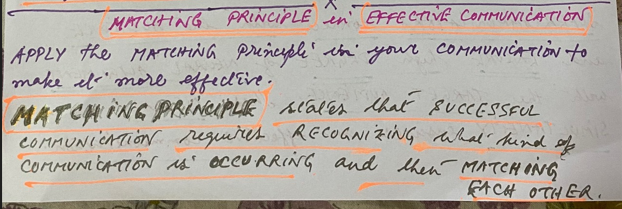 MATCHING PRINCIPLE in EFFECTIVE COMMUNICATION
APPLY the MATCHING principle in your COMMUNICATION to
make it more effective.
MATCHING PRINCIPLE states that SUCCESSFUL
COMMUNICATION requires RECOGNIZING what kind of
COMMUNICATION is OCCURRING and then MATCHING
EACH OTHER.